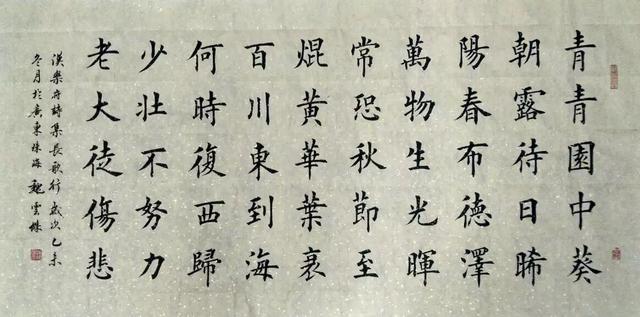 青青園中葵
朝露待日晞
陽春布德澤
萬物生光暉
常恐秋節至
焜黃華葉衰
百川東到海
何時復西歸
少壯不努力
老大徒傷悲
漢樂府詩集長歌行歲次乙未
冬月於廣東珠海 魏雲